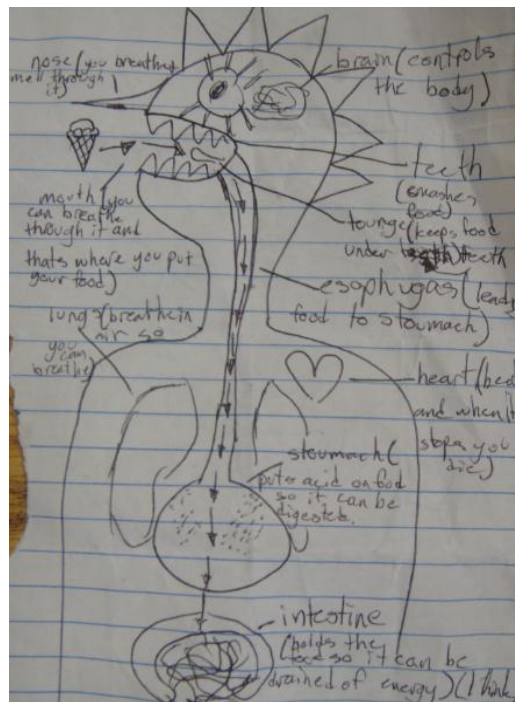 nose (you breathe,
mell through
it)
brain (controls
the body)
teeth
(smashes
food)
mouth (you
can breathe
through it and
thats where you put
your food)
tounge (keeps food
under teeth)
esophugas (leads
food to stoumach)
lungs (breathe in
air so
you can
breathe)
heart (bea
and when it
stops, you
die)
stoumach (
puts acid on food
so it can be
digested.
intestine
(holds the
so it can be
drained of energy) (I think